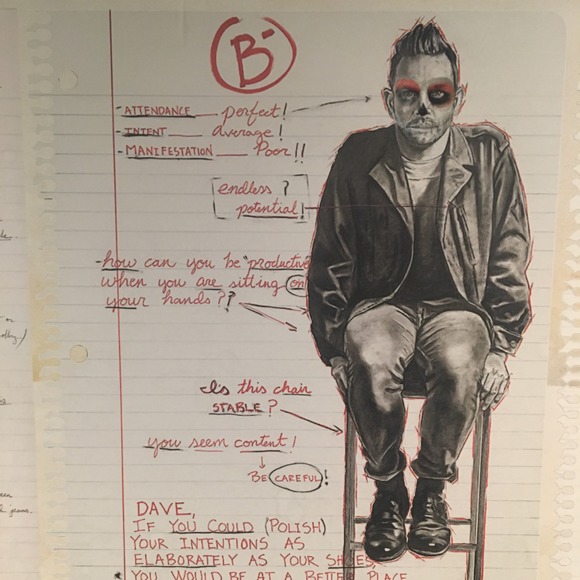 B-
- ATTENDANCE ___ perfect!
- INTENT ___ average!
- MANIFESTATION ___ Poor!!
endless?
potential!
- how can you be "productive"
when you are sitting on
your hands??
Is this chair
STABLE?
you seem content!
BE CAREFUL!
DAVE,
IF YOU COULD (POLISH)
YOUR INTENTIONS AS
ELABORATELY AS YOUR SHOES,
YOU WOULD BE AT A BETTER PLACE